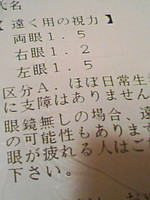 氏名
【 遠く用の視力
両眼１．５
右眼１．２
左眼１．５
区分Ａ．ほぼ日常生
に支障はありません
眼鏡無しの場合、遠
の可能性もあります
眼が疲れる人はご
下さい。